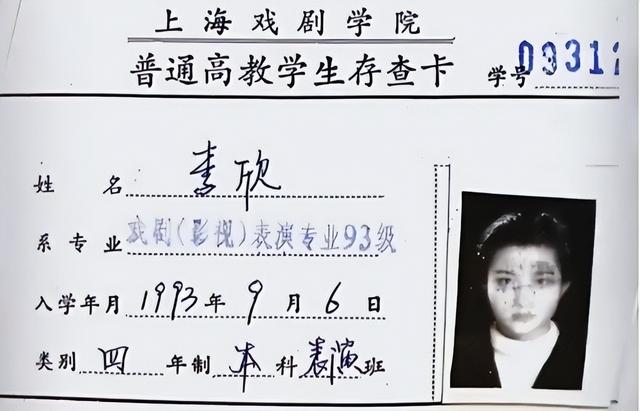 上海戏剧学院
普通高教学生存查卡
学号 09312
姓名 李欣
系专业 戏剧(影视)表演专业93级
入学年月 1993年9月6日
类别 四年制本科表演班